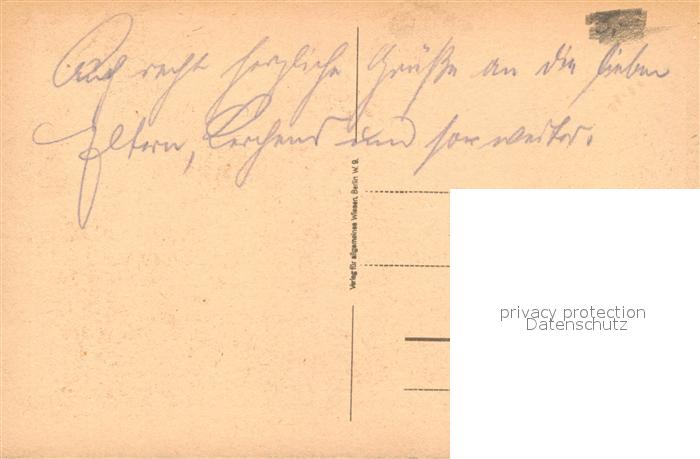 Auch recht herzliche Grüße an die lieben
Eltern, und so weiter.
Verlag für allgemeines Wissen, Berlin W. 9.
privacy protection
Datenschutz